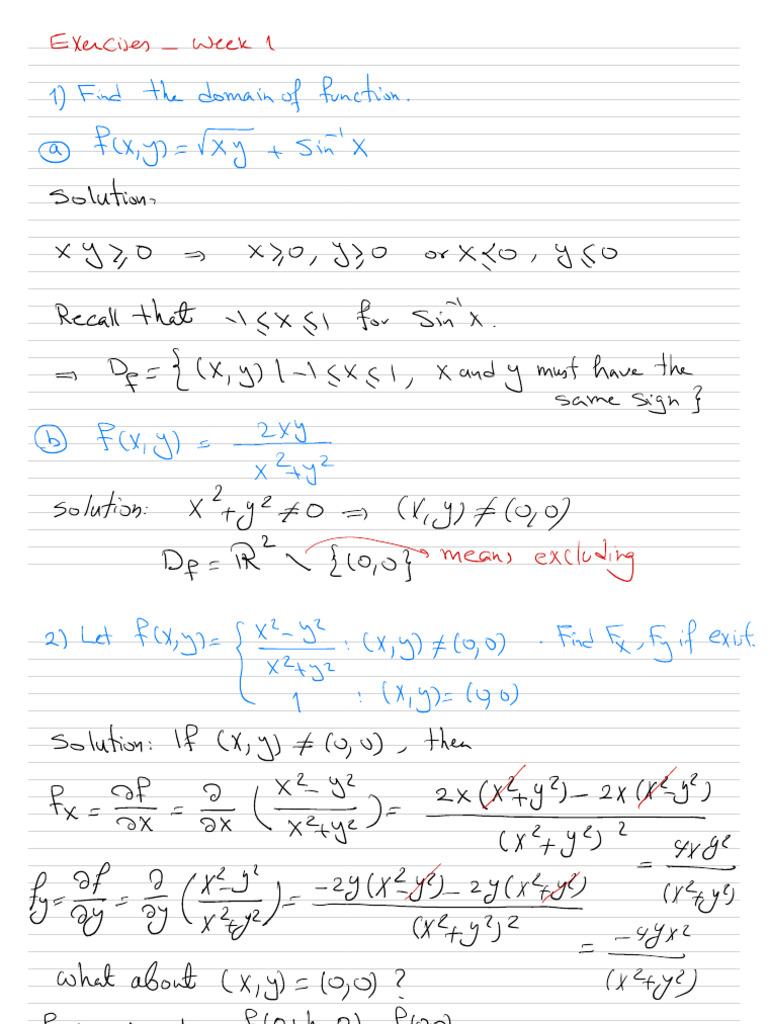 Exercises _ Week 1
1) Find the domain of function.
(a) f(x,y) = √xy + Sin⁻¹ x
Solution:
xy ≥ 0 ⇒ x ≥ 0, y ≥ 0 or x ≤ 0, y ≤ 0
Recall that -1 ≤ x ≤ 1 for Sin⁻¹ x.
⇒ D_f = { (x,y) | -1 ≤ x ≤ 1, x and y must have the
same sign }
(b) f(x,y) = 2xy / (x² + y²)
Solution: x² + y² ≠ 0 ⇒ (x,y) ≠ (0,0)
D_f = ℝ² \ {(0,0} → means excluding
2) Let f(x,y) = { (x² - y²) / (x² + y²) : (x,y) ≠ (0,0) . Find F_x, F_y if exist.
1 : (x,y) = (0,0)
Solution: If (x,y) ≠ (0,0), then
f_x = ∂f/∂x = ∂/∂x ( (x² - y²) / (x² + y²) ) = (2x(x² + y²) - 2x(x² - y²)) / (x² + y²)²
= 4xy² / (x² + y²)
f_y = ∂f/∂y = ∂/∂y ( (x² - y²) / (x² + y²) ) = (-2y(x² - y²) - 2y(x² + y²)) / (x² + y²)²
= -4yx² / (x² + y²)
What about (x,y) = (0,0) ?